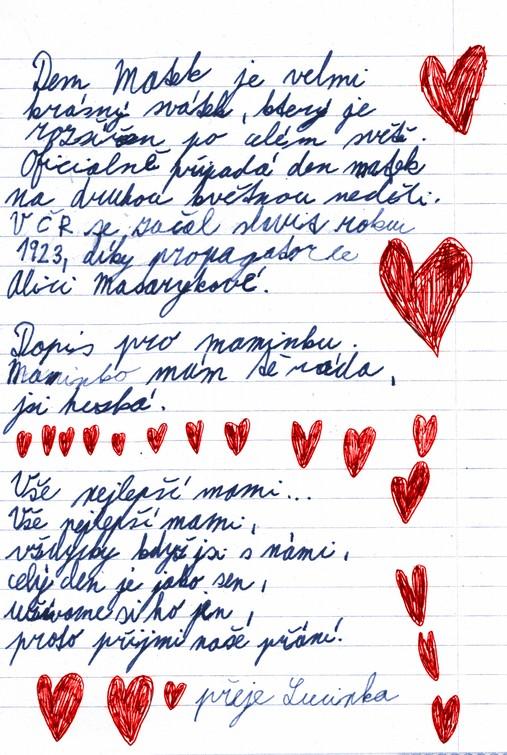 Dem Matek je velmi
krásný svátek, který je
rozšířen po celém světě.
Oficialně připadá den matek
na druhou květnou neděli.
V ČR se začal slavit roku
1923, díky propagatorce
Alici Masarykové.
Dopis pro maminku.
Maminko mám tě ráda,
jsi hezká.
Vše nejlepší mami...
Vše nejlepší mami,
vždyťky když jsi s námi,
celý den je jako sen,
užívame si ho jen,
proto přijmi naše přání!
přeje Lucinka